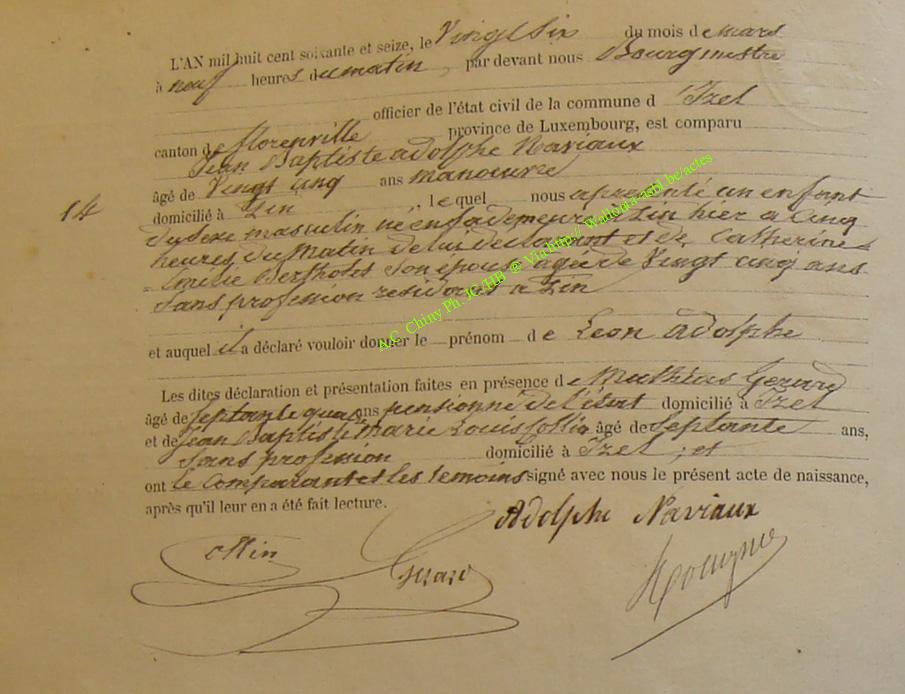 L'AN mil huit cent soixante et seize, le Vingt Six du mois de Mars
à neuf heures du matin, par devant nous Bourgmestre
officier de l'état civil de la commune d'Izel
canton de florenville province de Luxembourg, est comparu
Jean Baptiste adolphe Naviaux
âgé de Vingt cinq ans manoeuvre
14
domicilié à Pin, le quel nous a présenté un enfant
du sexe masculin né en sa demeure à Pin hier à Cinq
heures du Matin de lui déclarant et de Catherine
Emélie Bertholet son épouse agée de Vingt cinq ans
Sans profession residant à Pin
et auquel il a déclaré vouloir donner le prénom de Léon adolphe
Les dites déclaration et présentation faites en présence de Mathias Gerard
âgé de septante quatre ans pensionné de l'état domicilié à Izel
et de Jean Baptiste Marie Louis Collin âgé de Septante ans,
Sans profession domicilié à Izel ; et
ont le Comparant et les temoins signé avec nous le présent acte de naissance,
après qu'il leur en a été fait lecture.
Adolphe Naviaux
Collin Gerard
A.C. Chiny Ph JC/HB @ Via http://Wallonia-asbl.be/actes